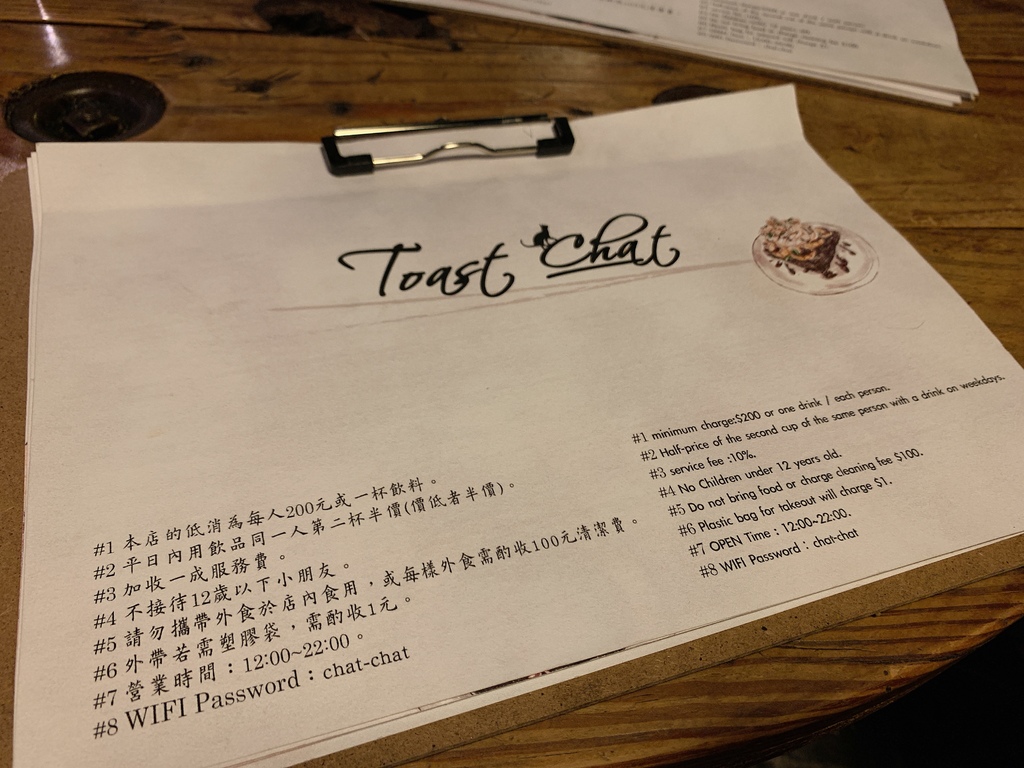 Toast Chat
#1 本店的低消為每人200元或一杯飲料。
#2 平日內用飲品同一人第二杯半價(價低者半價)。
#3 加收一成服務費。
#4 不接待12歲以下小朋友。
#5 請勿攜帶外食於店內食用，或每樣外食需酌收100元清潔費。
#6 外帶若需塑膠袋，需酌收1元。
#7 營業時間：12:00~22:00。
#8 WIFI Password：chat-chat
#1 minimum charge:$200 or one drink / each person.
#2 Half-price of the second cup of the same person with a drink on weekdays.
#3 service fee :10%.
#4 No Children under 12 years old.
#5 Do not bring food or charge cleaning fee $100.
#6 Plastic bag for takeout will charge $1.
#7 OPEN Time : 12:00~22:00.
#8 WIFI Password : chat-chat